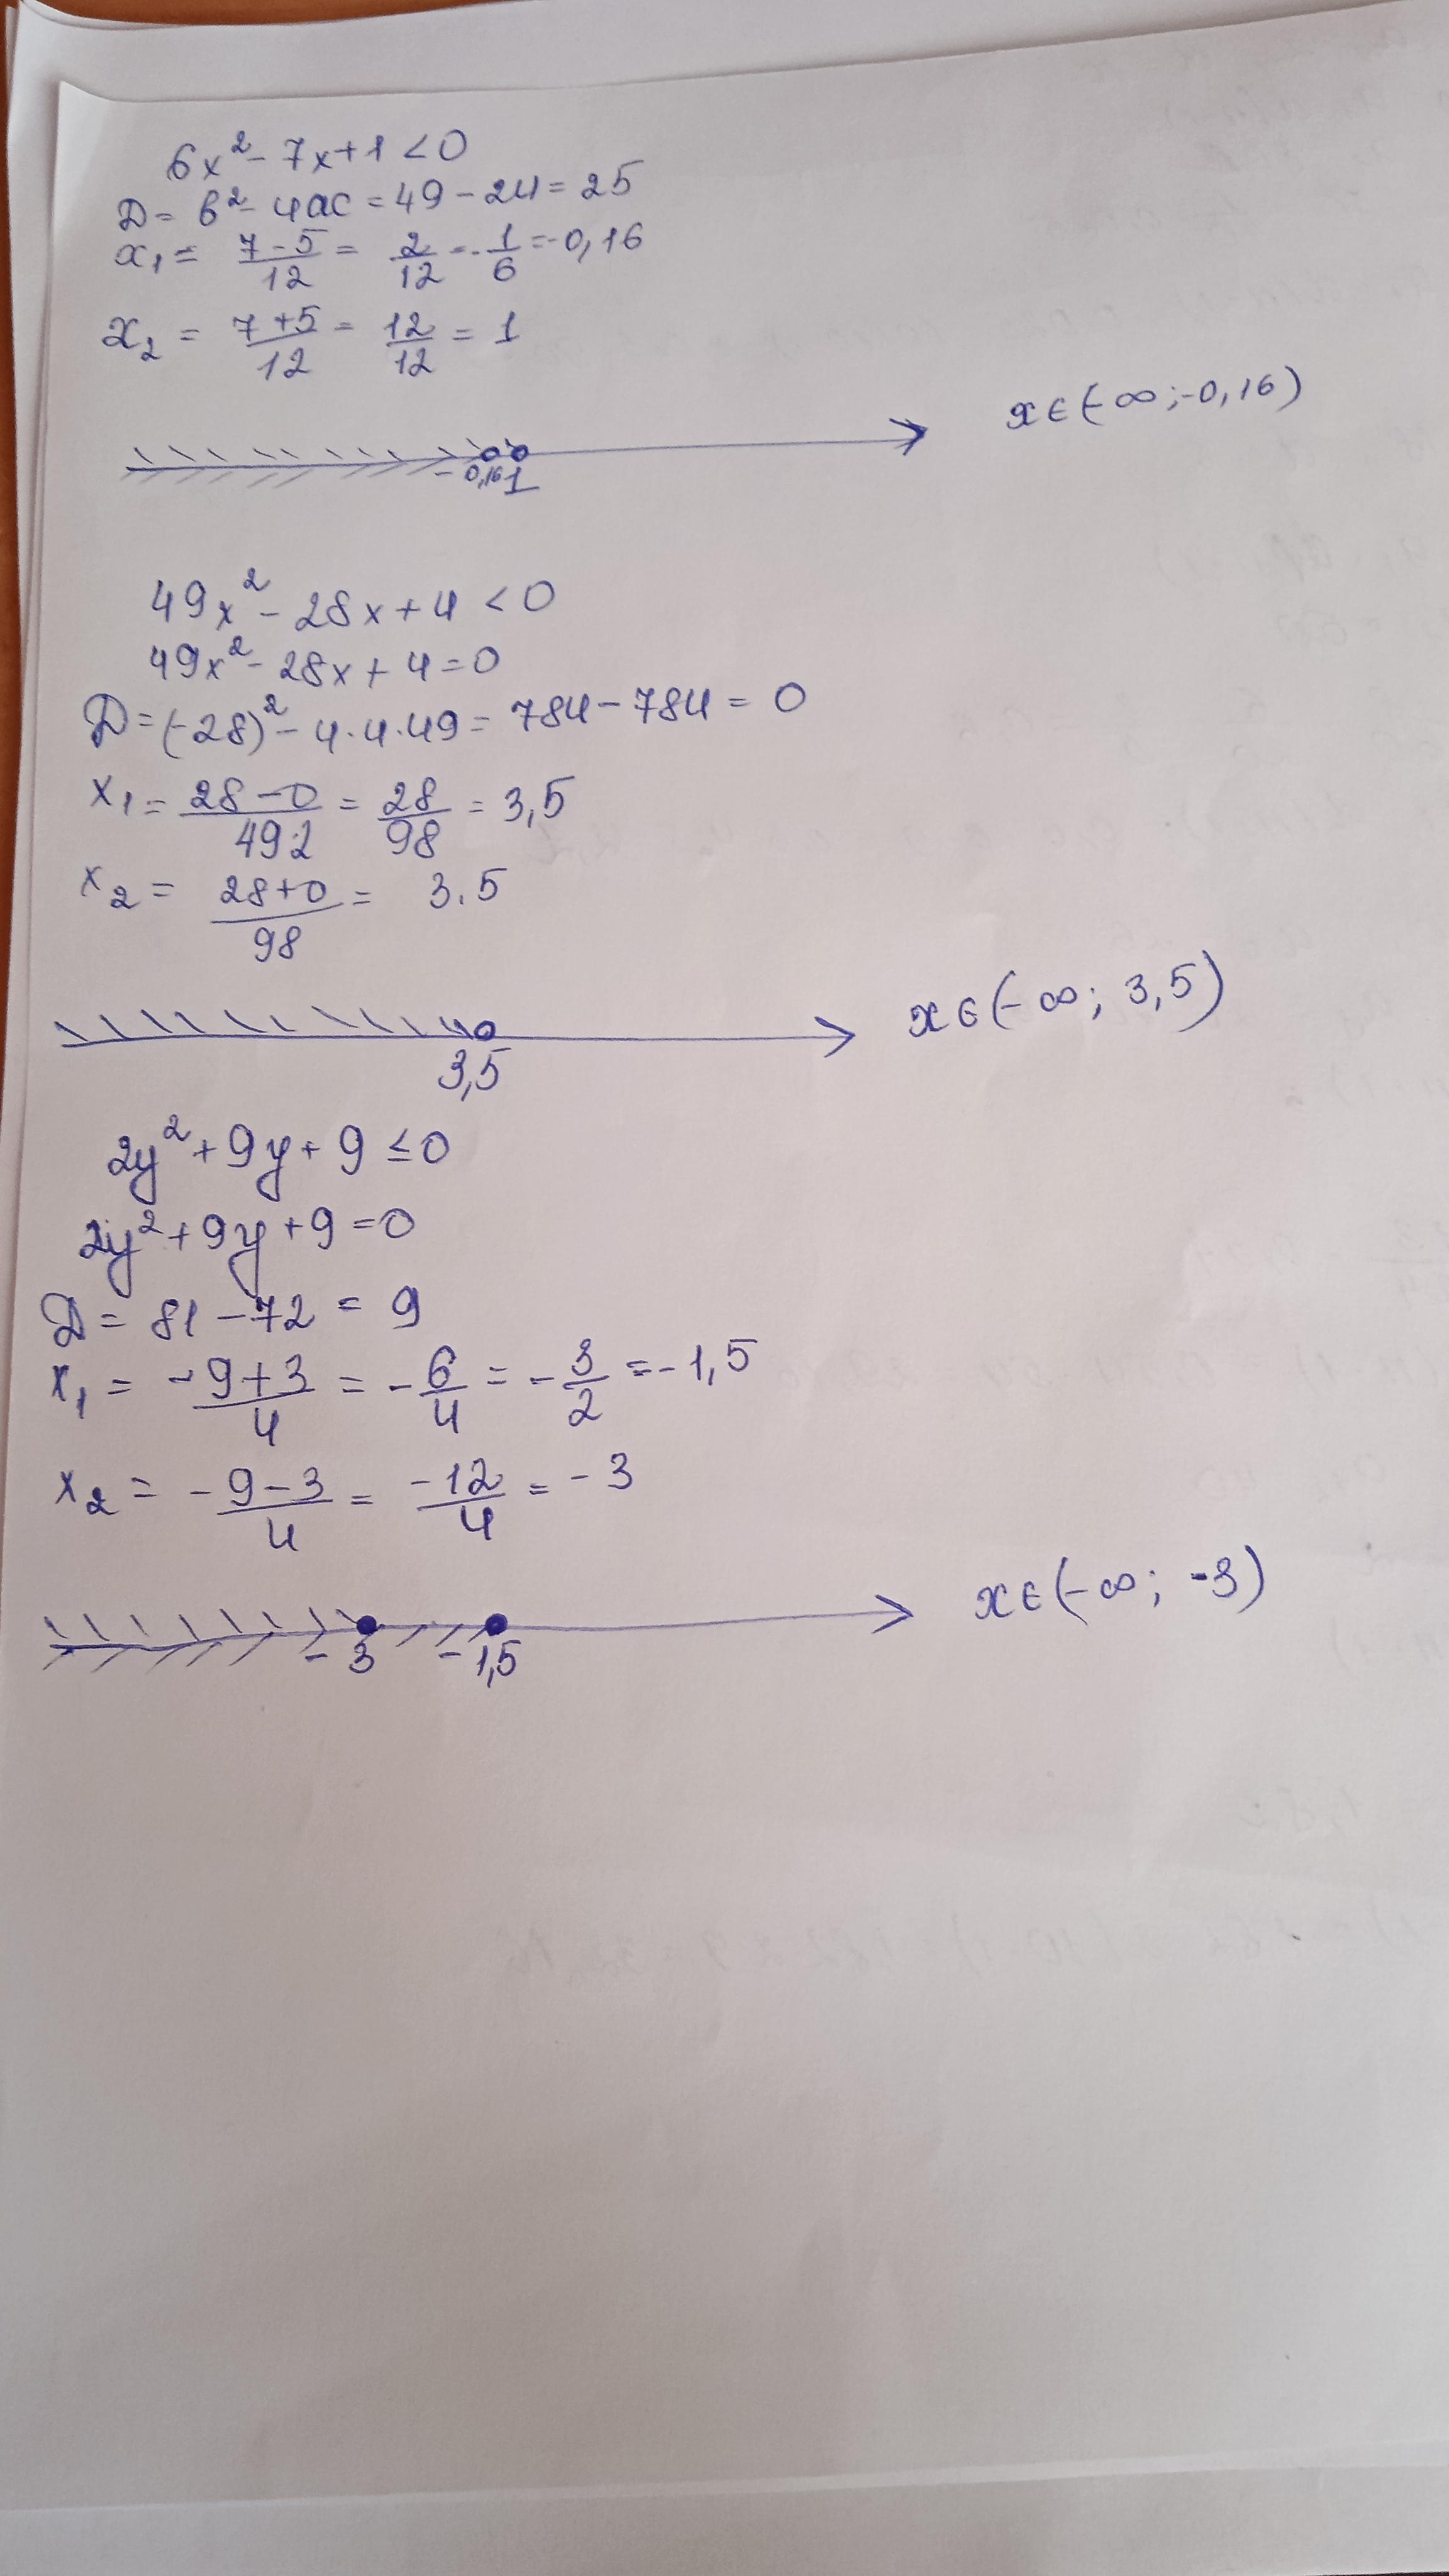 6x² - 7x + 1 < 0
D = b² - 4ac = 49 - 24 = 25
x₁ = (7 - 5)/12 = 2/12 = -1/6 = -0,16
x₂ = (7 + 5)/12 = 12/12 = 1
x ∈ (-∞; -0,16)
-0,16 1
49x² - 28x + 4 < 0
49x² - 28x + 4 = 0
D = (-28)² - 4·4·49 = 784 - 784 = 0
x₁ = (28 - 0)/(49·2) = 28/98 = 3,5
x₂ = (28 + 0)/98 = 3.5
x ∈ (-∞; 3,5)
3,5
2y² + 9y + 9 ≤ 0
2y² + 9y + 9 = 0
D = 81 - 72 = 9
x₁ = (-9 + 3)/4 = -6/4 = -3/2 = -1,5
x₂ = (-9 - 3)/4 = -12/4 = -3
x ∈ (-∞; -3)
-3 -1,5